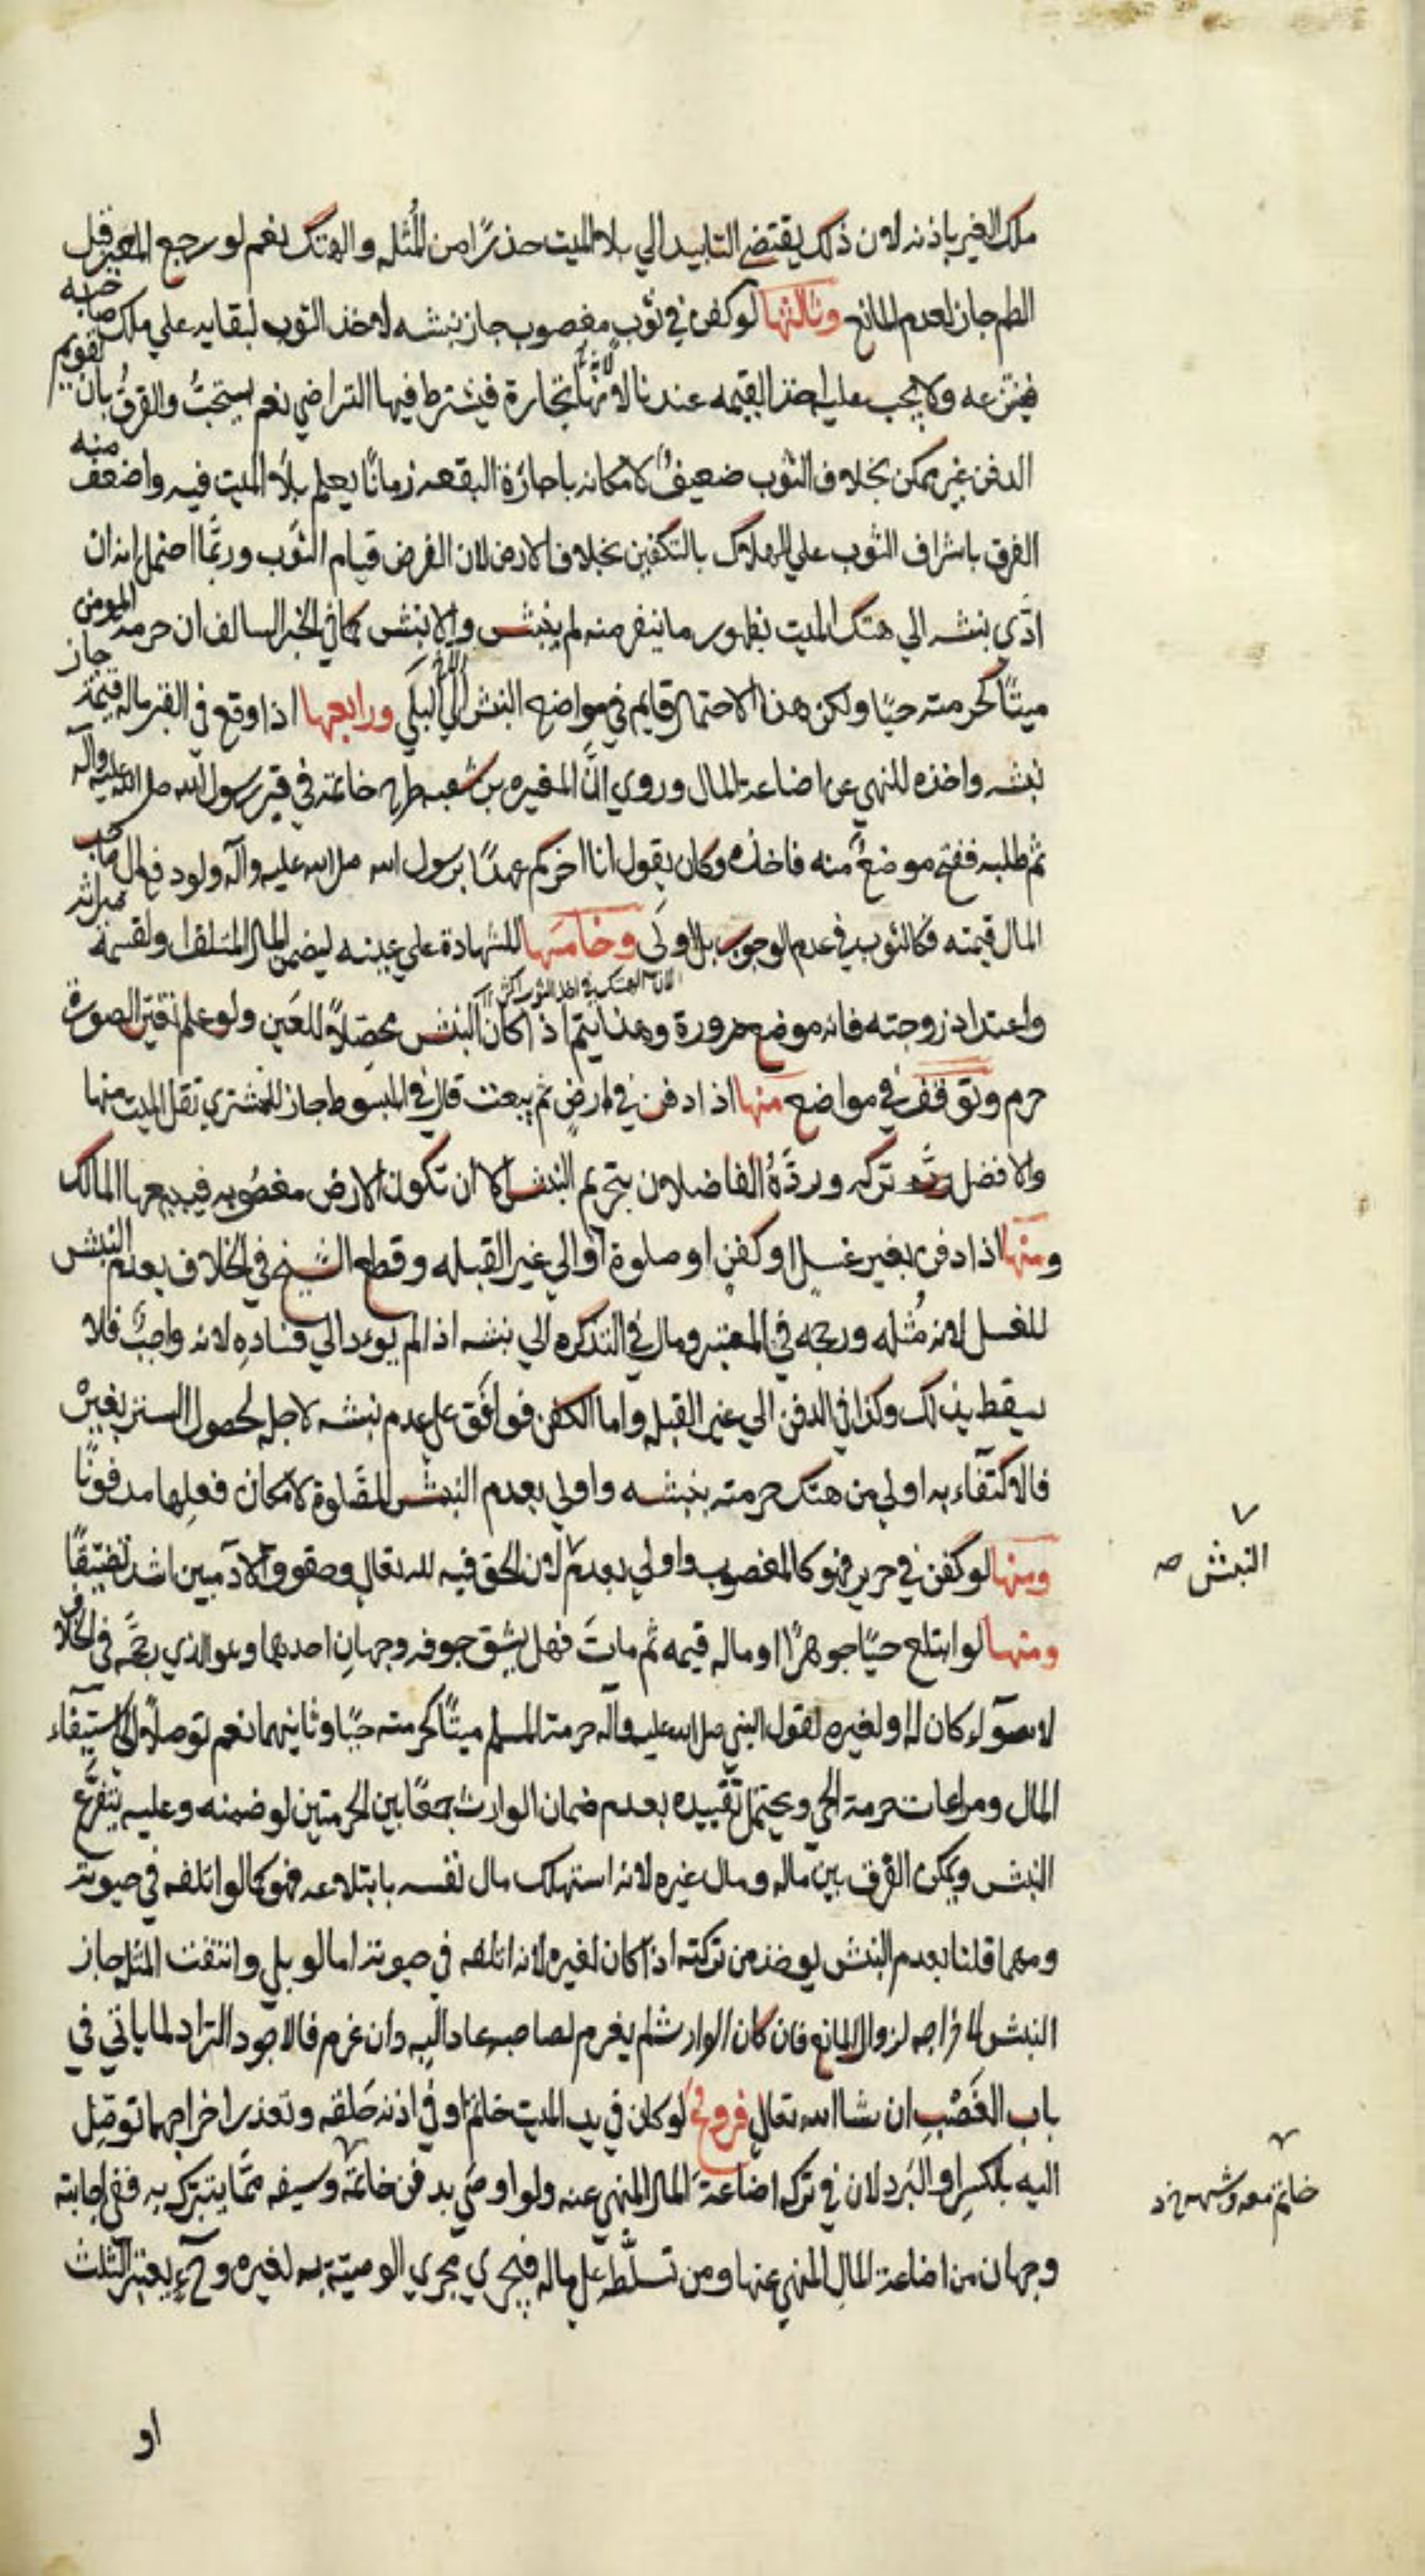 ملك الغير باذنه لان ذلك يقتضي التابيد الي بلاء الميت حذرًا من المُثله والهتك نعم لو رجع المعير قبل
الطم جاز لعدم المانع وثالثها لو كفن في ثوب مغصوب جاز نبشه لاخذ الثوب لبقايه علي ملك صاحبه
فينتزعه ولا يجب عليه اخذ القيمه عندنا لانها تجارة فيشترط فيها التراضي نعم يستحبُّ والفرقُ بانّ تقويم
الدفن غير ممكن بخلاف الثوب ضعيفٌ لامكانه باجارة البقعه زمانًا يعلم بلاء الميت فيه واضعف منه
الفرق باشراف الثوب علي الهلاك بالتكفين بخلاف الارض لان الفرض قيام الثوب وربّما احتمل انه ان
ادّي نبشه الي هتك الميت بظهور ما ينفر منه لم ينبش والا نبش كما في الخبر السالف ان حرمه المومن
ميتًا كحرمته حيًا ولكن هذا الاحتمال قايم في مواضع النبش الي البلَي ورابعها اذا وقع في القبر ماله قيمة جاز
نبشه واخذه للنهي عن اضاعة المال وروي انّ المغيره بن شعبه طرح خاتمه في قبر رسول الله صلى الله عليه وآله
ثم طلبه ففتح موضعٌ منه فاخذه وكان يقول انا اخركم عهدًا برسول الله صلى الله عليه وآله ولو دفع الى صاحب
المال قيمته فكالثوب في عدم الوجوب بل اولَى وخامسها للشهادة علي عينه ليضمن المال المتلف او لقسمة ميراثه
واعتداد زوجته فانه موضع ضرورة وهذا يتم اذا كان النبش محصّلاً للعَين ولو علم تغيّر الصورة
لان الهتك في اخذ الثوب اكثر
حرم وتوقف في مواضع منها اذا دفن في ارض ثم بيعت قال في المبسوط جاز للمشتري نقل الميت منها
والافضل تركه وردَّهُ الفاضلان بتحريم النبش الا ان تكون الارض مغصُوبه فيبيعها المالك
ومنها اذا دفن بغير غسل او كفن او صلوة او الي غير القبله وقطع الشيخ في الخلاف بعدم النبش
للغسل لانه مُثله ورجحه في المعتبر ومال في التذكره الي نبشه اذا لم يودِ الي فساده لانه واجبٌ فلا
يسقط بذلك وكذا في الدفن الي غير القبله واما الكفن فوافق علي عدم نبشه لاجله لحصول الستر بغيره
فالاكتفاء به اولي من هتك حرمته بنبشه واولي بعدم النبش الصّلوة لامكان فعلها مدفونًا
ومنها لو كفن في حرير فهو كالمغصوب واولي بعدم لان الحق فيه لله تعالي وحقوق الآدميين اشد تضيّقًا
النبش صه
ومنها لو ابتلع حيًا جوهرًا او ماله قيمه ثم مات فهل يشق جوفه وجهان احدهما وهو الذي رجّحه في الخلاف
لا سوآء كان له او لغيره لقول النبي صلى الله عليه وآله حرمة المسلم ميتًا كحرمته حيًا وثانيهما نعم توصلاً الى استيفاء
المال ومراعات حرمة الحي ويحتمل تقييده بعدم ضمان الوارث جمعًا بين الحرمتين لو ضمنه وعليه يتفرّع
النبش ويمكن الفرق بين ماله ومال غيره لانه استهلك مال نفسه بابتلاعه فهو كما لو اتلفه في حيوته
ومهما قلنا بعدم النبش يوخذ من تركته اذا كان لغيره لانه اتلفه في حيوته اما لو بلي وانتفت المثله جاز
النبش لاخراجه لزوال المانع فان كان الوارث لم يغرم لصاحبه عاد اليه وان غرم فالاجود التراد لما ياتي في
باب الغَصْبِ ان شا الله تعالي فروعٌ لو كان في يد الميت خاتم او في اذنه حَلقه وتعذر اخراجهما توصّل
اليه بالكسر او البَرد لان في تركه اضاعة المال المنهي عنه ولو اوصَي بدفن خاتمه وسيفه ممّا يتبرك به ففي اجابته
خاتم معه
وجهان من اضاعة المالِ المنهي عنها ومن تسلّطه علي ماله فيجري مجري الوصيّة به لغيره وح يعتبر الثلث
او